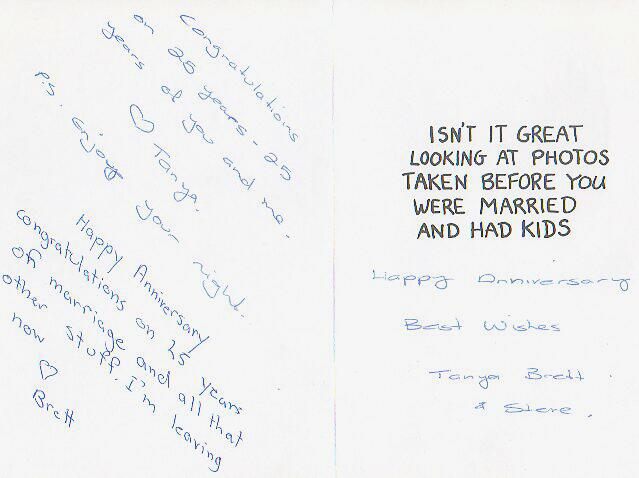 Congratulations
on 25 years - 25
years of you and me.
♡ Tanya.
P.S. Enjoy your night.
Happy Anniversary
congratulations on 25 years
of marriage and all that
other stuff. I'm leaving
now
♡
Brett
ISN'T IT GREAT
LOOKING AT PHOTOS
TAKEN BEFORE YOU
WERE MARRIED
AND HAD KIDS
Happy Anniversary
Best Wishes
Tanya Brett
& Steve.